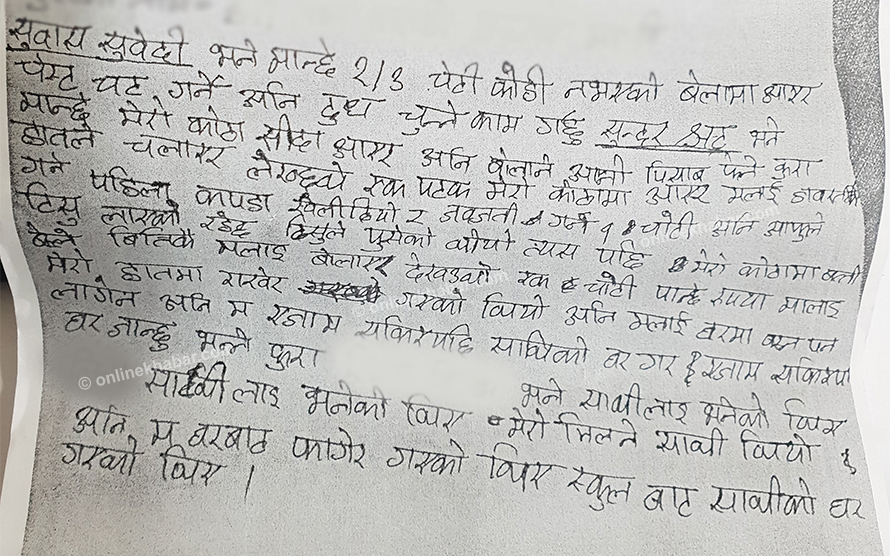 सुवास सुवेदी भन्ने मान्छे २/३ चोटी कोही नभएको बेलामा आएर
चेस्ट चट गर्ने अनि दुध चुस्ने काम गर्छ सुन्दर भन्ने
मान्छे मेरो कोठा सीदा आएर अनि बोलाने आफ्नो पिसाब फेर्ने कुरा
हातले चलाएर एक पटक मेरो कोठामा आएर मलाई
गर्ने पहिला कपडा खोलीदियो र जवजस्ती गर्ने १ चोटी अनि आफुले
टिसु लाएको टिसुले पुसेको थीयो त्यस पछि मेरो कोठामा बत्ती
बेलै मलाइ बोलाएर देखाउको एक चोटी पान्छे रुपया मालाइ
मेरो हातमा राखेर गएको थियो अनि मलाई घरमा बस्न पन
लागेन अनि म एजाम सकिएपछि साथिको घर गए एजाम सकिएपछि
घर जान्छु भन्ने कुरा भन्ने साथीलाइ भनेको थिए
साथीलाइ भनेको थिए मेरो मिल्ने साथी थियो
अनि म घरबाट भागेर गएको थिए स्कुल बाट साथीको घर
गएको थिए ।
© onlinekhabar.com